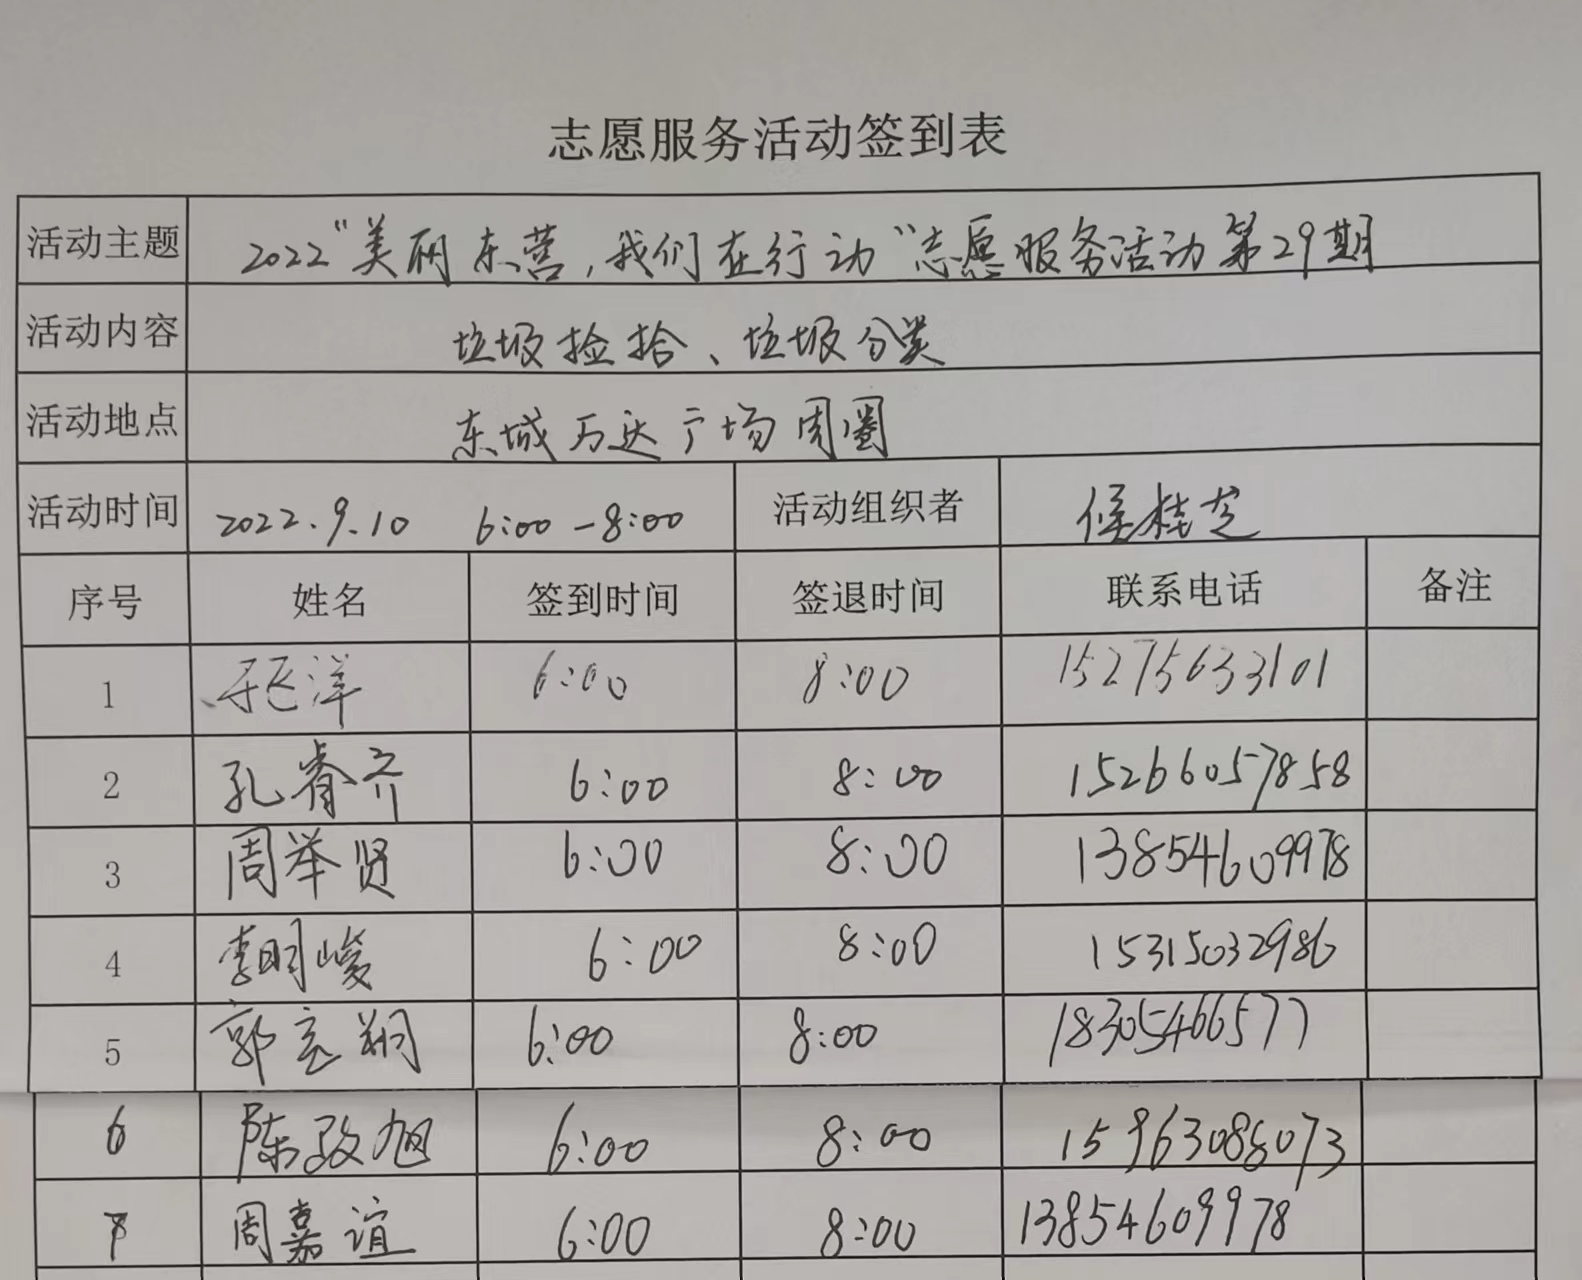 志愿服务活动签到表
活动主题 2022"美丽东营,我们在行动"志愿服务活动第29期
活动内容 垃圾捡拾、垃圾分类
活动地点 东城万达广场周圈
活动时间 2022.9.10 6:00-8:00 活动组织者 侯桂芝
序号 姓名 签到时间 签退时间 联系电话 备注
1 洋 6:00 8:00 15275633101
2 孔脊齐 6:00 8:00 15266057858
3 周举贤 6:00 8:00 13854609978
4 李明峻 6:00 8:00 15315032986
5 郭亮翔 6:00 8:00 18305466577
6 陈政旭 6:00 8:00 15963088073
7 周嘉谊 6:00 8:00 13854609978